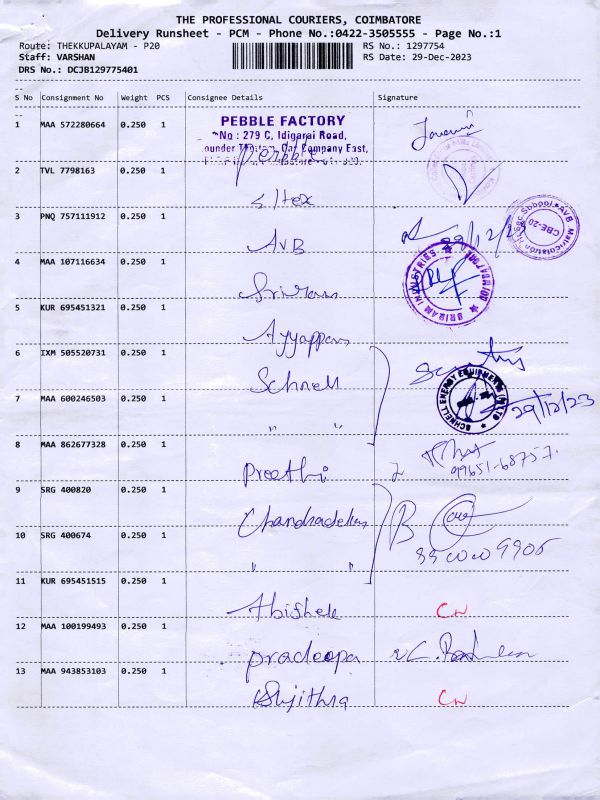 THE PROFESSIONAL COURIERS, COIMBATORE
Delivery Runsheet - PCM - Phone No.:0422-3505555 - Page No.:1
Route: THEKKUPALAYAM - P20 RS No.: 1297754
Staff: VARSHAN RS Date: 29-Dec-2023
DRS No.: DCJB129775401
S No Consignment No Weight PCS Consignee Details Signature
PEBBLE FACTORY
1 MAA 572280664 0.250 1
No : 279 C, Idigarai Road,
Company East,
Pebble
2 TVL 7798163 0.250 1
Sltex
3 PNQ 757111912 0.250 1
AVB 29/12/23
4 MAA 107116634 0.250 1
Sriram
SRIRAM INDUSTRIES
5 KUR 695451321 0.250 1
Ayyappan
6 IXM 505520731 0.250 1
Schnell
7 MAA 600246503 0.250 1
" "
SCHNELL ENERGY EQUIPMENTS (P) LTD
29/12/23
8 MAA 862677328 0.250 1
Preethi
99651-68757
9 SRG 400820 0.250 1
10 SRG 400674 0.250 1
" "
11 KUR 695451515 0.250 1
Abishek CN
12 MAA 100199493 0.250 1
Pradeepa
13 MAA 943853103 0.250 1
Sujithra CN